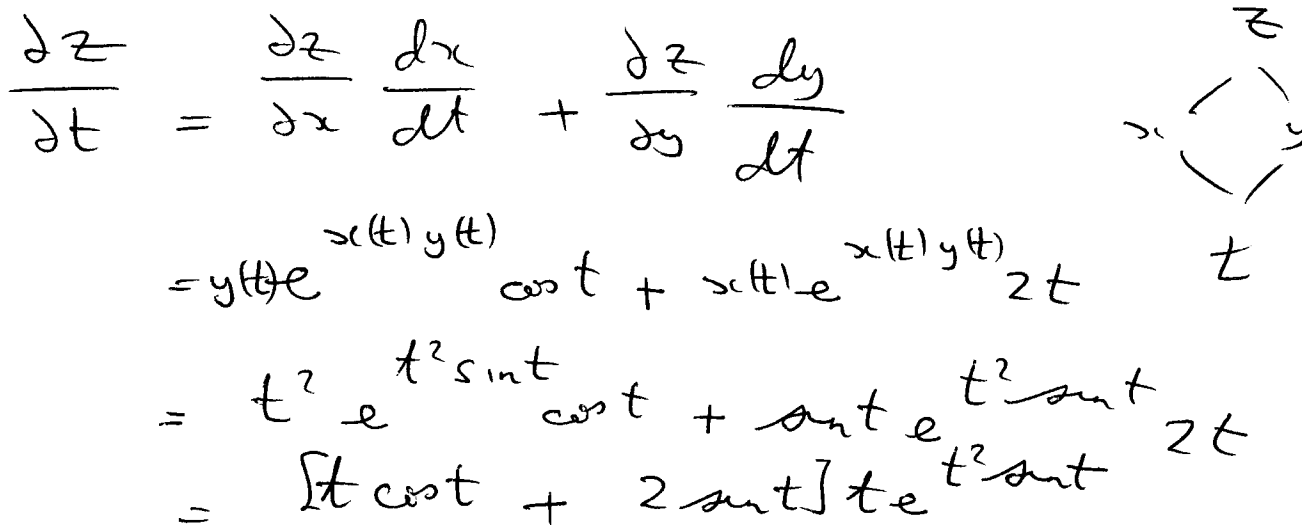 ∂z/∂t = ∂z/∂x dx/dt + ∂z/∂y dy/dt
z
x y
t
= y(t)e^{x(t) y(t)} cos t + x(t)e^{x(t) y(t)} 2t
= t² e^{t² sin t} cos t + sin t e^{t² sin t} 2t
= [t cos t + 2 sin t] t e^{t² sin t}